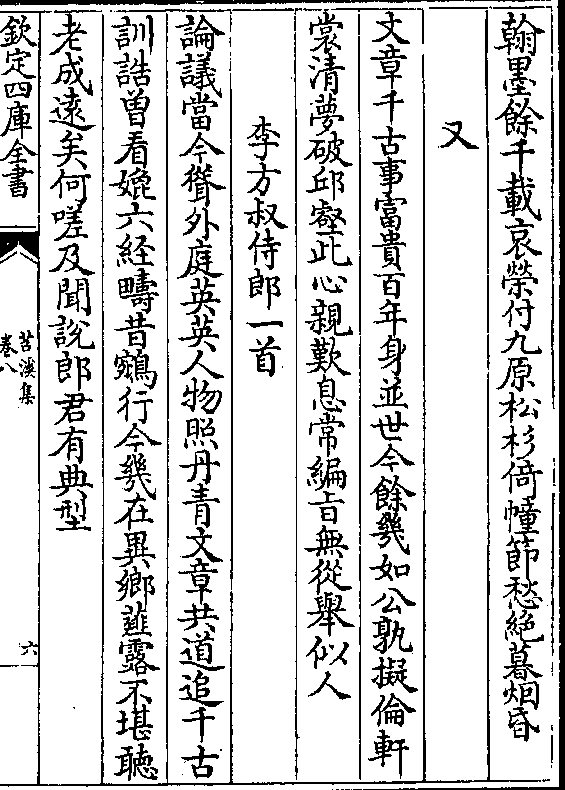 翰墨餘千載哀榮付九原松杉倚幢節愁絕暮烟昏
又
文章千古事富貴百年身並世今餘幾如公孰擬倫軒
裳清夢破邱壑此心親歎息常編旨無從舉似人
李方叔侍郎一首
論議當今聳外庭英英人物照丹青文章共道追千古
訓誥曽看媲六經疇昔鵷行今幾在異鄉薤露不堪聽
老成逺矣何嗟及聞說郎君有典型
欽定四庫全書
苕溪集
卷八
六